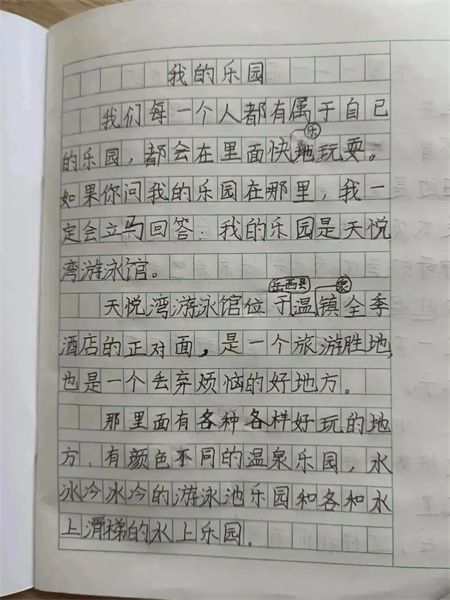 我的乐园
我们每一个人都有属于自己
的乐园，都会在里面快乐地玩耍。
如果你问我的乐园在那里，我一
定会立马回答：我的乐园是天悦
湾游泳馆。
岳西县
天悦湾游泳馆位于温泉镇全季
酒店的正对面，是一个旅游胜地，
也是一个丢弃烦恼的好地方。
那里面有各种各样好玩的地
方，有颜色不同的温泉乐园，水
冰冷冰冷的游泳池乐园和各和水
上滑梯的水上乐园。